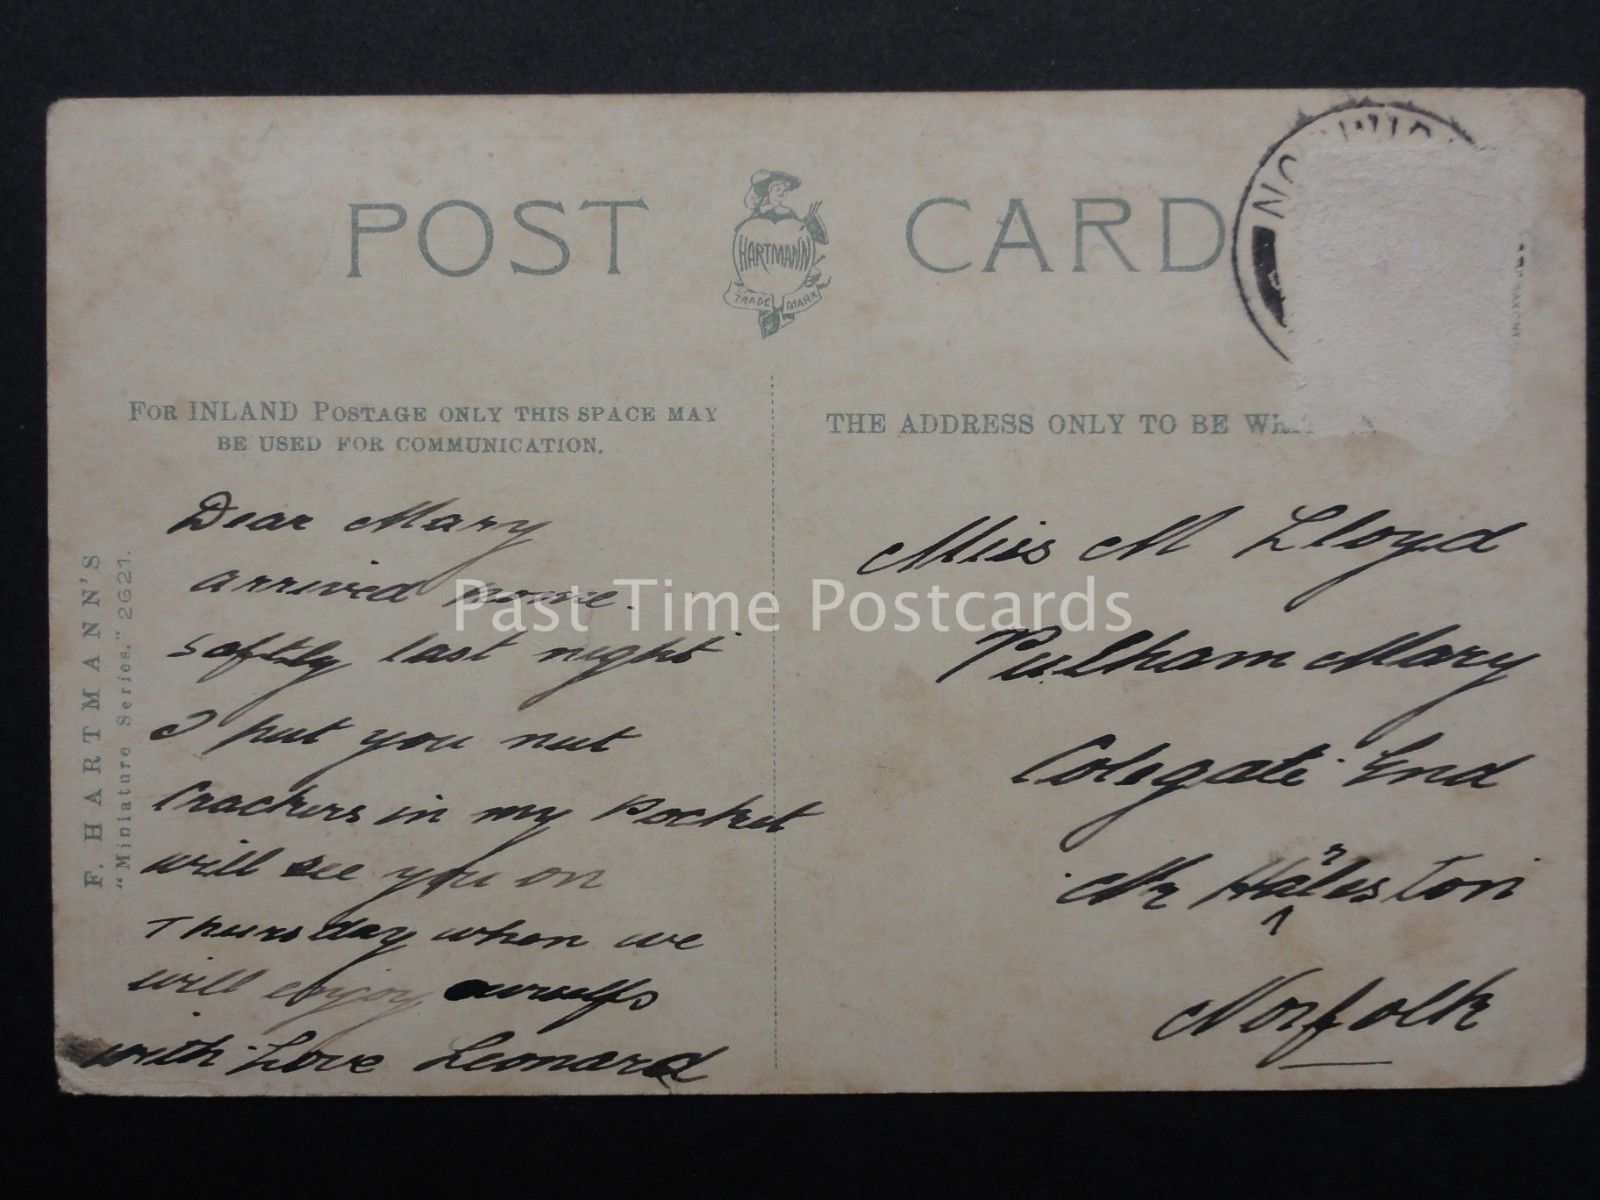 POST CARD
HARTMANN
TRADE MARK
FOR INLAND POSTAGE ONLY THIS SPACE MAY
BE USED FOR COMMUNICATION.
THE ADDRESS ONLY TO BE
F. HARTMANN'S
"Miniature Series." 2621.
Dear Mary
arrived home.
softly last night
I put you nut
Crackers in my Pocket
will see you on
Thursday when we
will enjoy ourselfs
with Love Leonard
Miss M Lloyd
Pulham Mary
Colegate End
Nr Harleston
Norfolk
SAXONY
Past Time Postcards